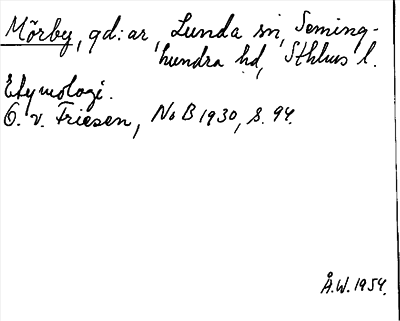 Mörby, gd:ar, Lunda sn, Seming-
hundra hd, Sthlms l.
Etymologi.
O. v. Friesen, NoB 1930, s. 94.
Å.W. 1954.